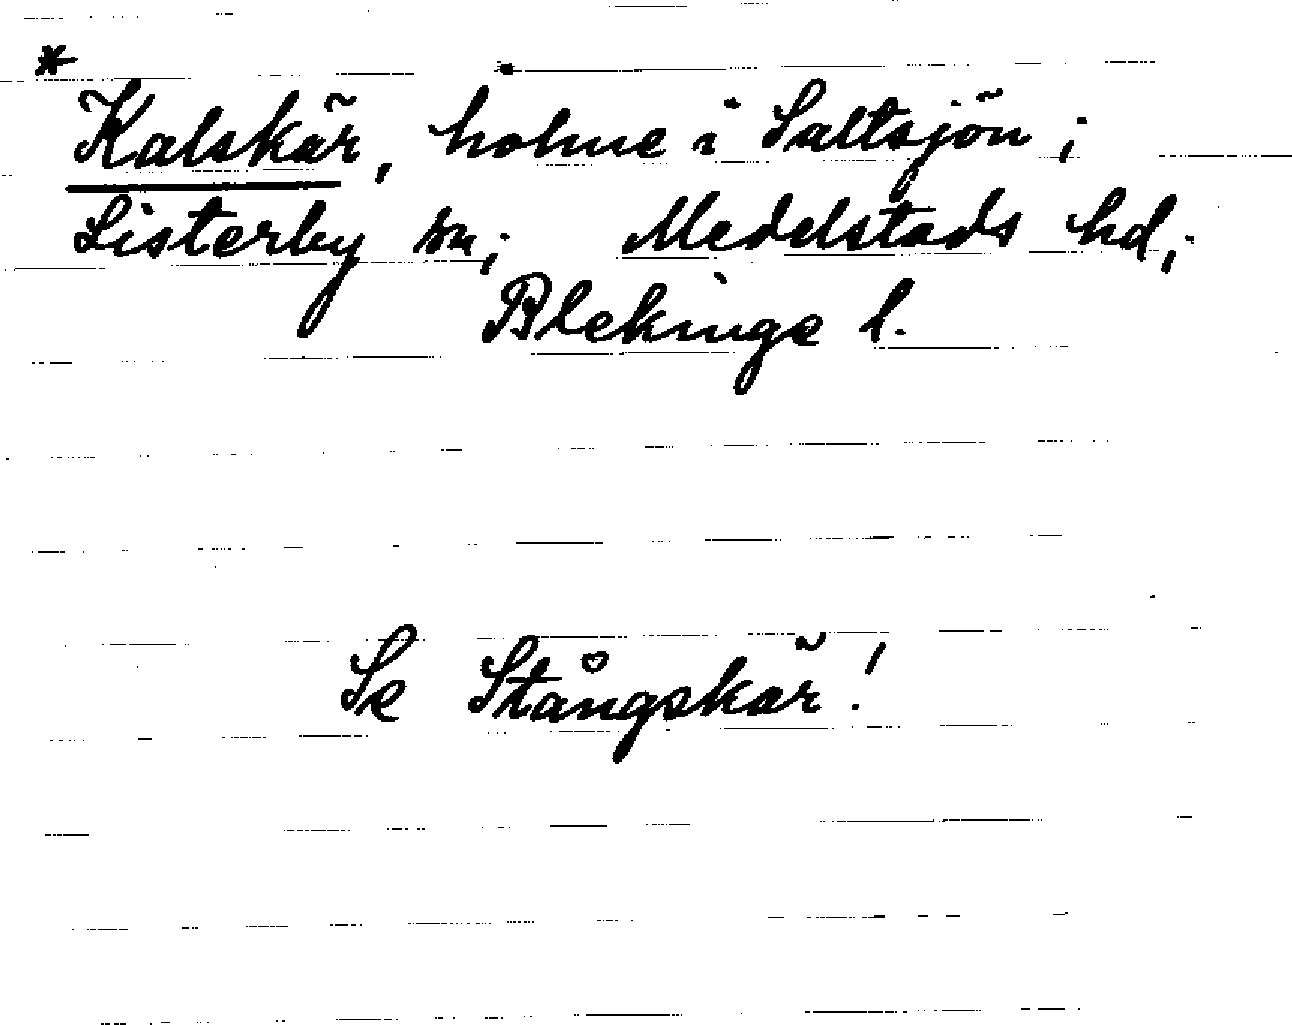 *
Kalskär, holme i Saltsjön;
Listerby sn; Medelstads hd,
Blekinge l.
Se Stångskär!